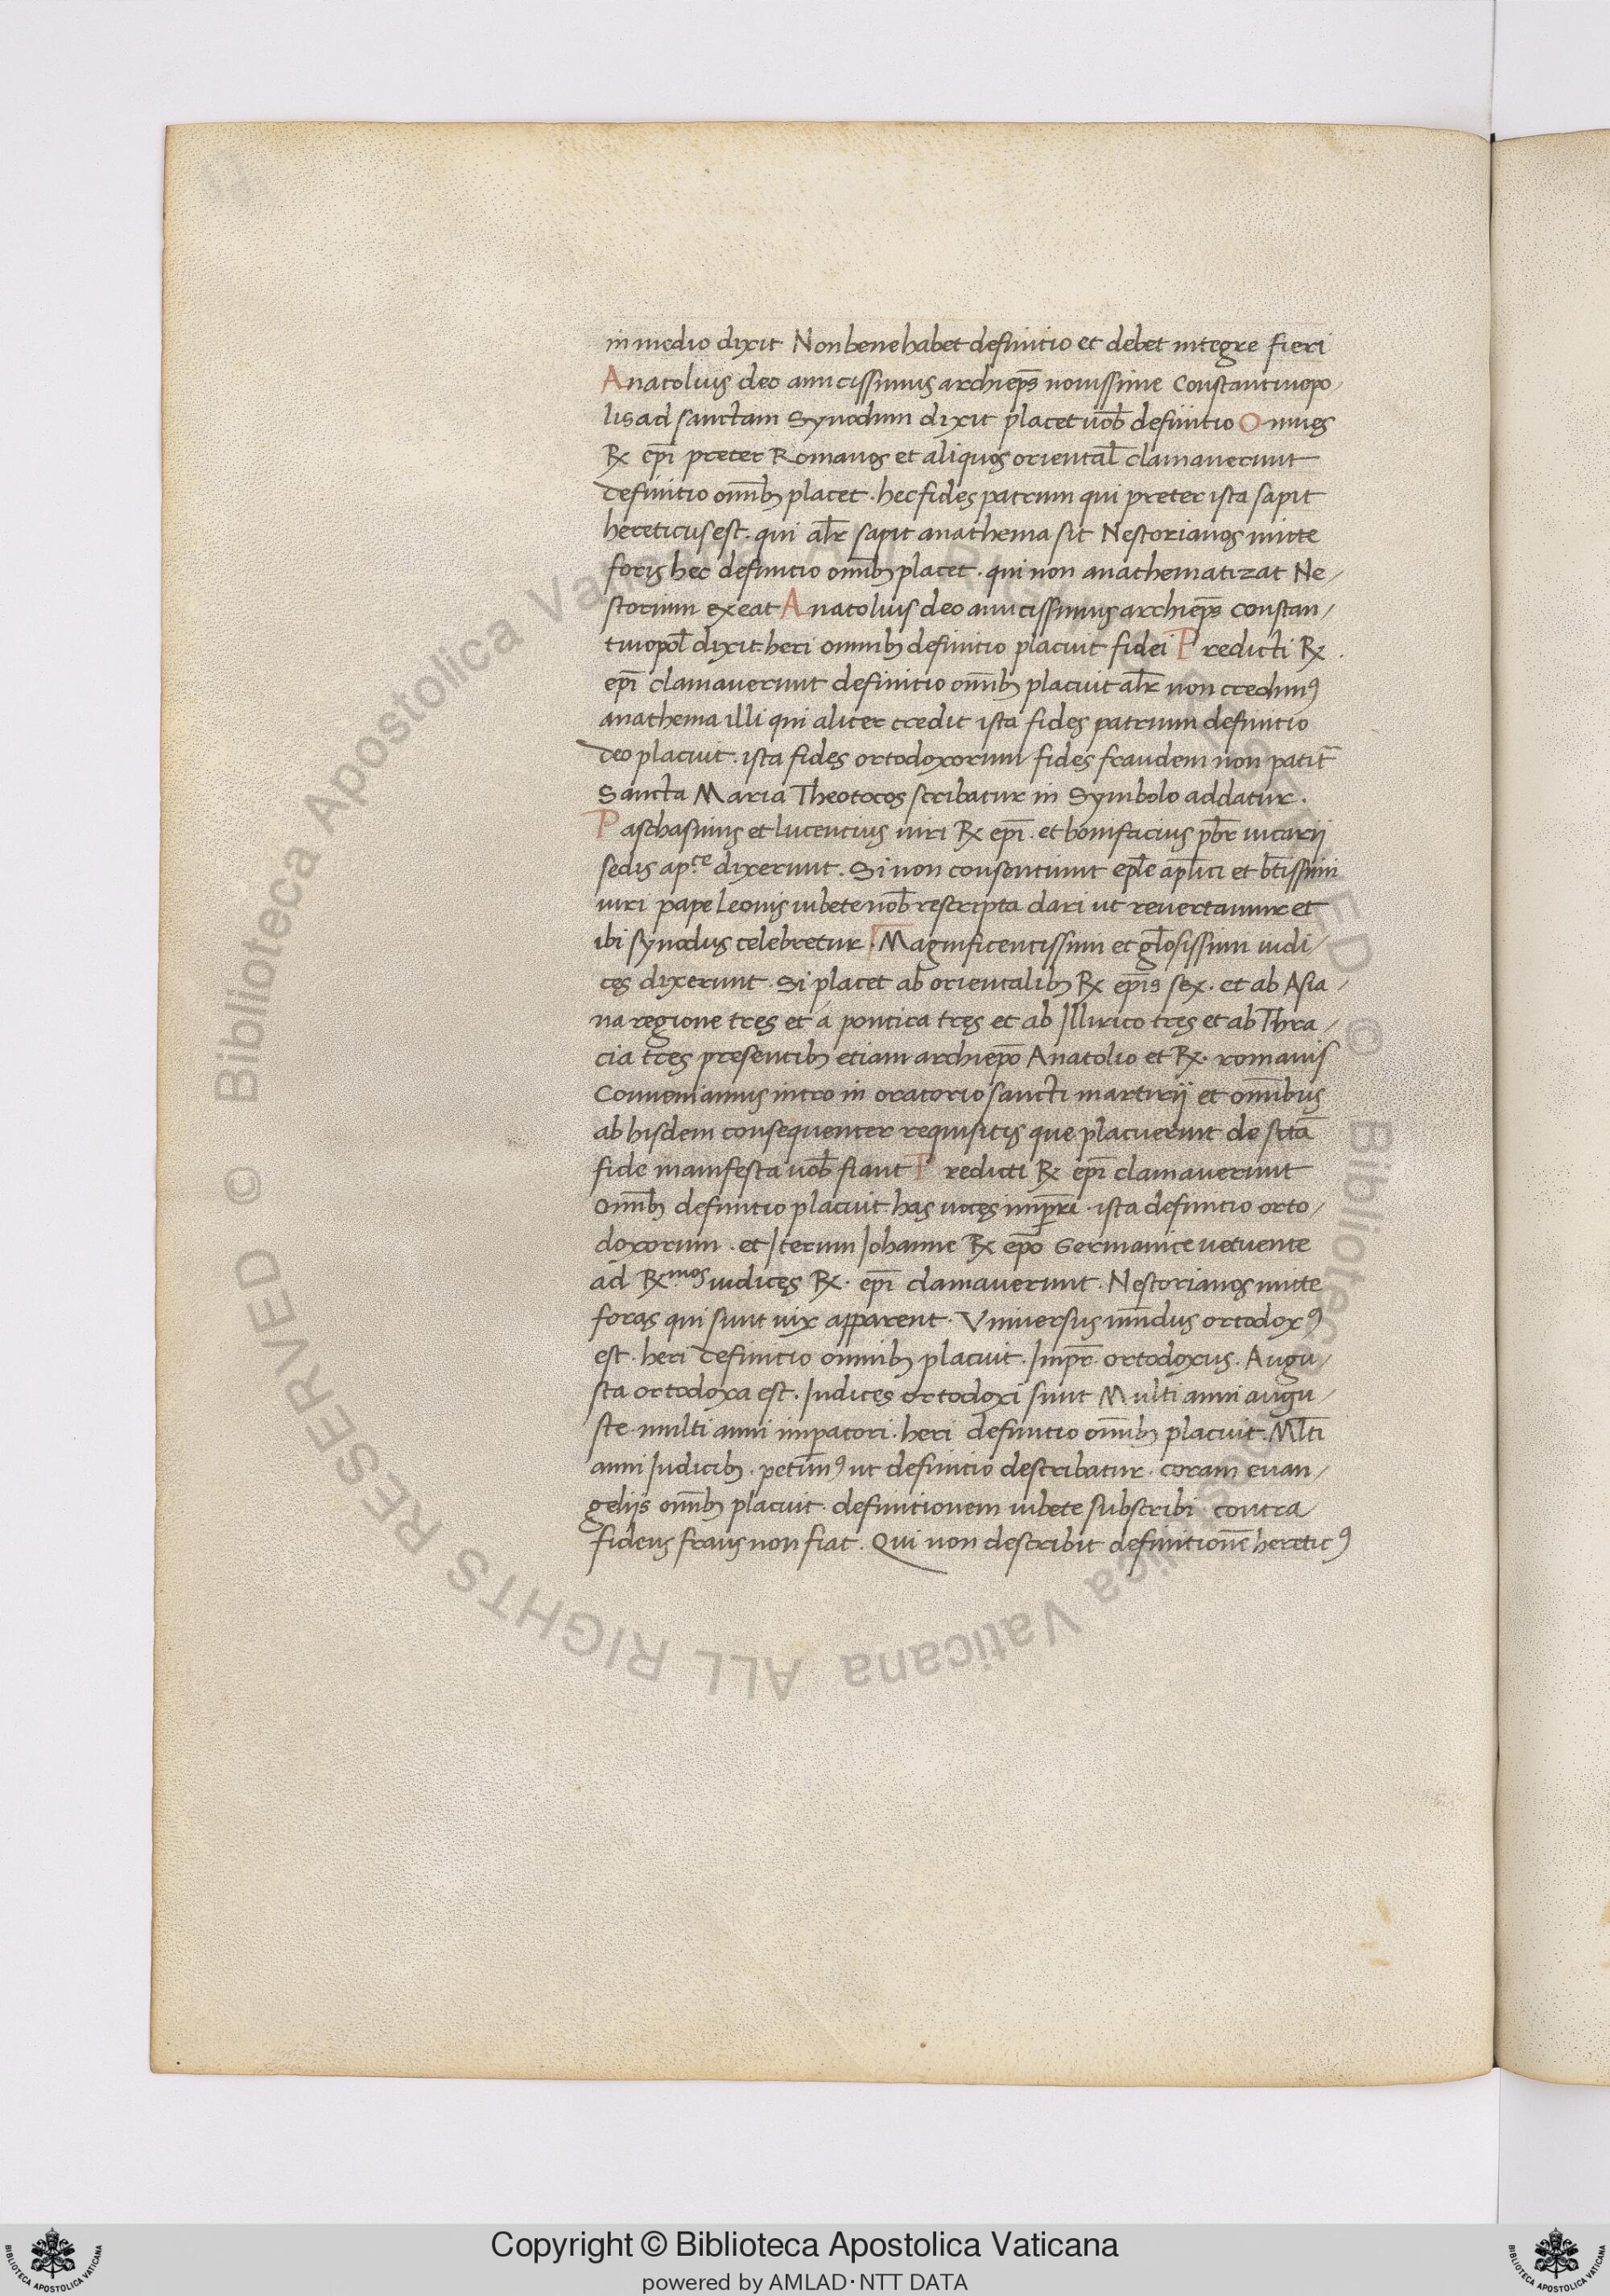 in medio dixit Non bene habet definitio et debet integre fieri
Anatolius deo amicissimus archiep̄s nouissime Constantinopo/
lis ad sanctam Synodum dixit placet uob̄ definitio Omnes
Rx ep̄i preter Romanos et aliquos oriental̄ clamauerunt
definitio om̄ibꝫ placet. hec fides patrum qui preter ista sapit
hereticus est. qui alr̄ sapit anathema sit Nestorianos mitte
foris hec definitio om̄ibꝫ placet. qui non anathematizat Ne/
storium exeat Anatolius deo amicissimus archiep̄s constan/
tinopol̄ dixit. heri omnibꝫ definitio placuit fidei Predicti Rx.
ep̄i clamauerunt definitio om̄ibꝫ placuit alr̄ non credimꝰ
anathema illi qui aliter credit ista fides patrum definitio
deo placuit. ista fides ortodoxorum fides fraudem non patit̄
Sancta Maria Theotocos scribatur in Symbolo addatur.
Paschasinus et lucentius uiri Rx ep̄i. et bonifacius pb̄r uicarij
sedis ap.ce dixerunt. Si non consentiunt ep̄le ap̄lici et b̄tissimi
uiri pape Leonis iubete nob̄ rescripta dari ut reuertamur et
ibi synodus celebretur. Magnificentissimi et gl̄osissimi iudi/
ces dixerunt. Si placet ab orientalibꝫ Rx ep̄is sex. et ab Asia/
na regione tres et a pontica tres et ab Illirico tres et ab Thra/
cia tres presentibꝫ etiam archiep̄o Anatolio et Rx. romanis
Conueniamus intro in oratorio sancti martirij et om̄ibus
ab hisdem consequenter requisitis que placuerunt de sc̄ta
fide manifesta uob̄ fiant Predicti Rx ep̄i clamauerunt
om̄ibꝫ definitio placuit has uoces imp̄ri. ista definitio orto/
doxorum. et Iterum Iohanne Rx ep̄o Germanice ueniente
ad Rx.mos iudices Rx. ep̄i clamauerunt. Nestorianos mitte
foras qui sunt uix apparent. Vniuersus mūdus ortodoxꝰ
est. heri definitio omnibꝫ placuit. Imp̄r. ortodoxus. Augu/
sta ortodoxa est. Iudices ortodoxi sunt Multi anni augu/
ste. multi anni imꝑatori. heri definitio om̄ibꝫ placuit. Ml̄ti
anni Iudicibꝫ. petim̄ꝰ ut definitio describatur. coram euan/
gelijs om̄ibꝫ placuit. definitionem iubete subscribi. contra
fideus fraus non fiat. Qui non describit definitionē hereticꝰ
Copyright © Biblioteca Apostolica Vaticana
powered by AMLAD·NTT DATA